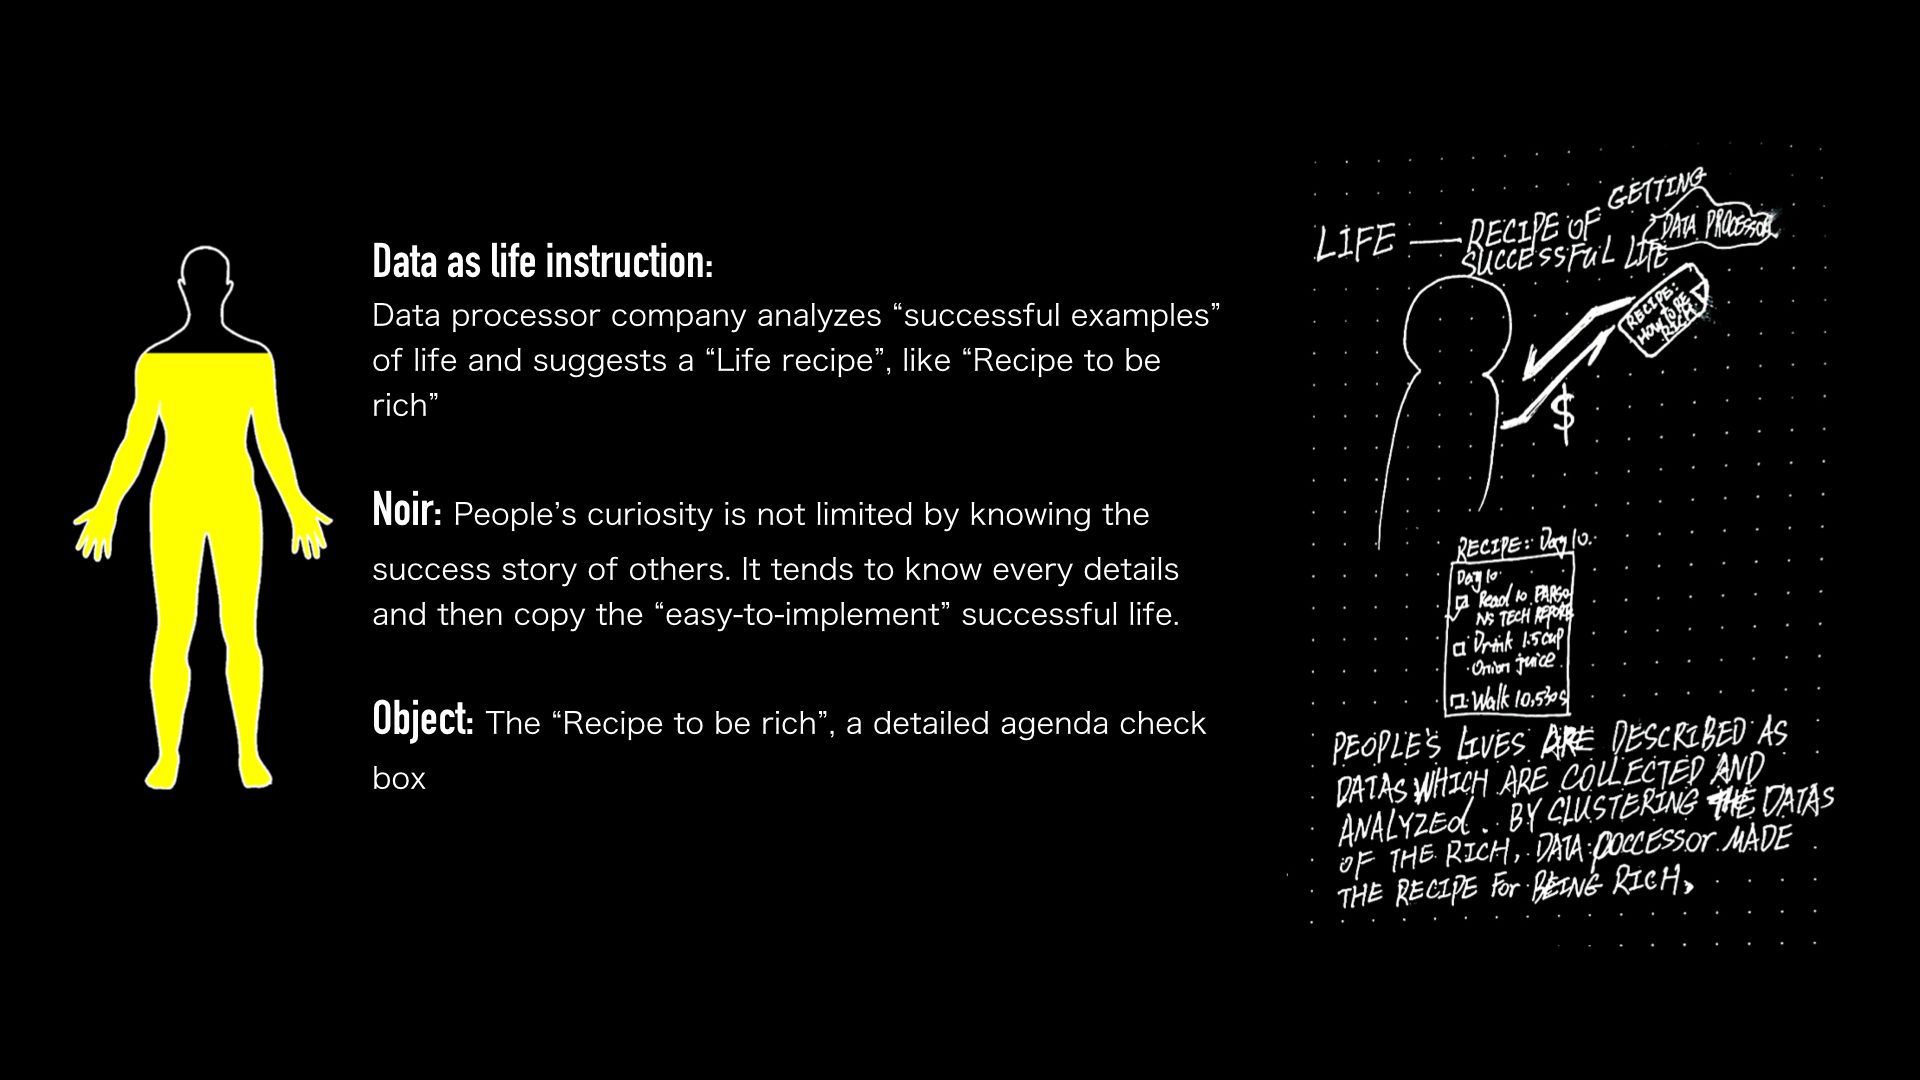 Data as life instruction:
Data processor company analyzes “successful examples”
of life and suggests a “Life recipe”, like “Recipe to be
rich”
Noir: People’s curiosity is not limited by knowing the
success story of others. It tends to know every details
and then copy the “easy-to-implement” successful life.
Object: The “Recipe to be rich”, a detailed agenda check
box
GETTING
LIFE — RECIPE OF
SUCCESSFUL LIFE
DATA PROCESSOR
RECIPE:
HOW TO BE
RICH
$
RECIPE: Day 10.
Day 10.
Read 10
TECH REPORT
Drink 1.5 cup
Onion juice
Walk 10,530s
PEOPLE'S LIVES ARE DESCRIBED AS
DATAS WHICH ARE COLLECTED AND
ANALYZEd. BY CLUSTERING THE DATAS
OF THE RICH, DATA poccessor MADE
THE RECIPE For BEING RICH.